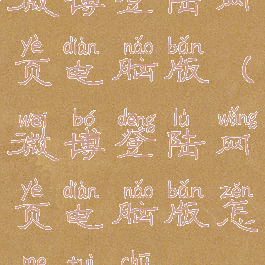 微博登陆网
yè diàn nǎo bǎn
页电脑版（
wēi bó dēng lù wǎng
微博登陆网
yè diàn nǎo bǎn zěn
页电脑版怎
me tuì chū